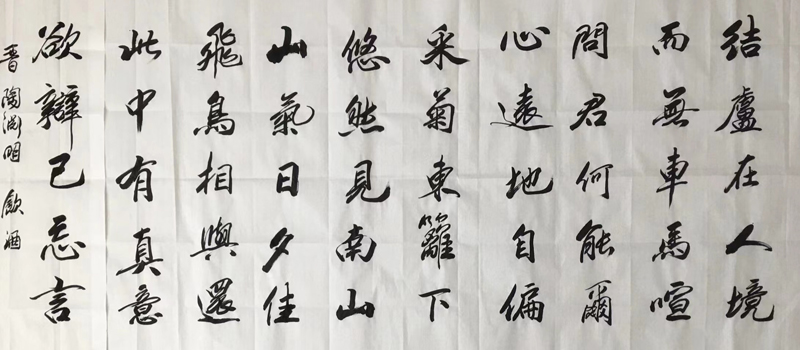 結廬在人境
而無車馬喧
問君何能爾
心遠地自偏
采菊東籬下
悠然見南山
山氣日夕佳
飛鳥相與還
此中有真意
欲辯已忘言
晋 陶渊明 飲酒